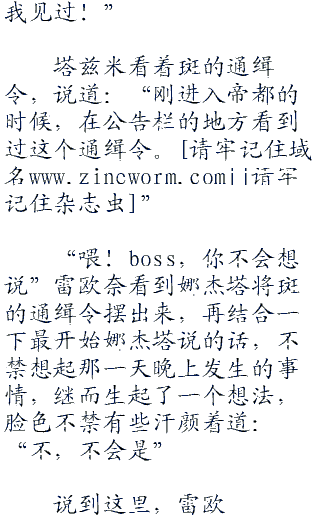 我见过！”
塔兹米看着斑的通缉
令，说道：“刚进入帝都的
时候，在公告栏的地方看到
过这个通缉令。[请牢记住域
名www.zincworm.com||请牢
记住杂志虫]”
“喂！boss，你不会想
说”雷欧奈看到娜杰塔将斑
的通缉令摆出来，再结合一
下最开始娜杰塔说的话，不
禁想起那一天晚上发生的事
情，继而生起了一个想法，
脸色不禁有些汗颜着道：
“不，不会是”
说到这里，雷欧